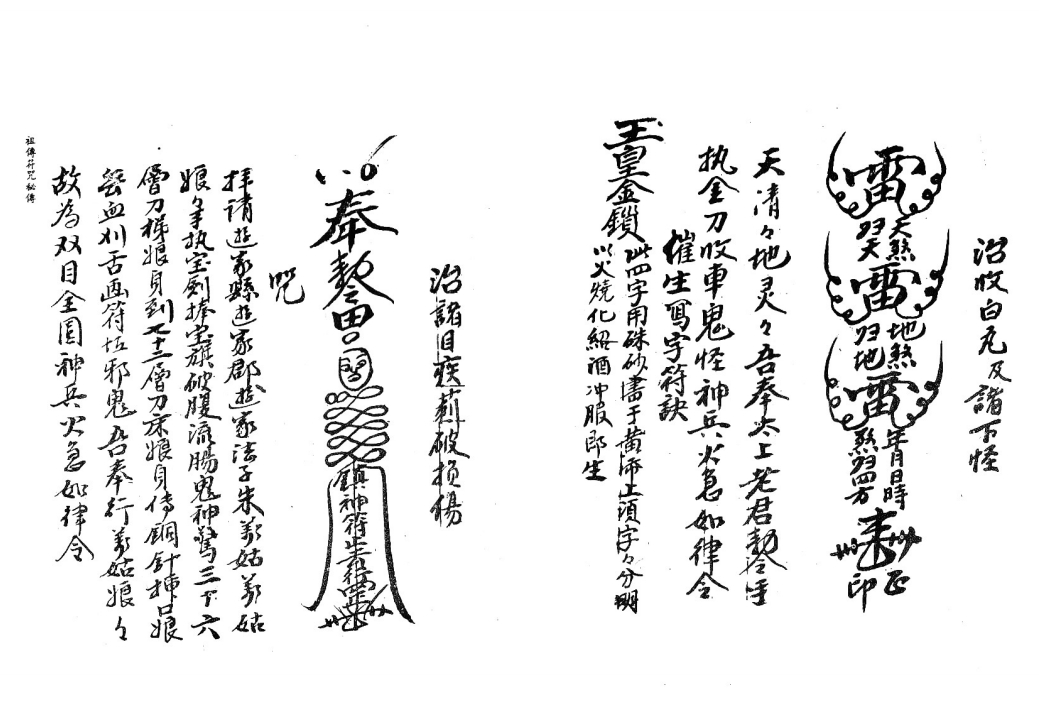 治收白虎及諸下怪
雷
天煞
归天
雷
地煞
归地
雷
年月日時
煞归四方
正
印
天清々地灵々吾奉太上老君勅令手
执金刀收車鬼怪神兵火急如律令
催生寫字符訣
玉皇金鎖
此四字用硃砂書于黄紙上須字々分明
以火燒化紹酒冲服即生
治諸目疾莿破损傷
奉勅令
鎮神符
咒
拝請遊家縣遊家郡遊家法子朱萘姑萘姑
娘手执宝劍捧宝旗破腹流腸鬼神驚三十六
層刀梯娘身到七十三層刀床娘身传銅針挿口娘
血刈舌画符

邪鬼吾奉行萘姑娘々
故為双目全圓神兵火急如律令
祖傳符咒秘傳